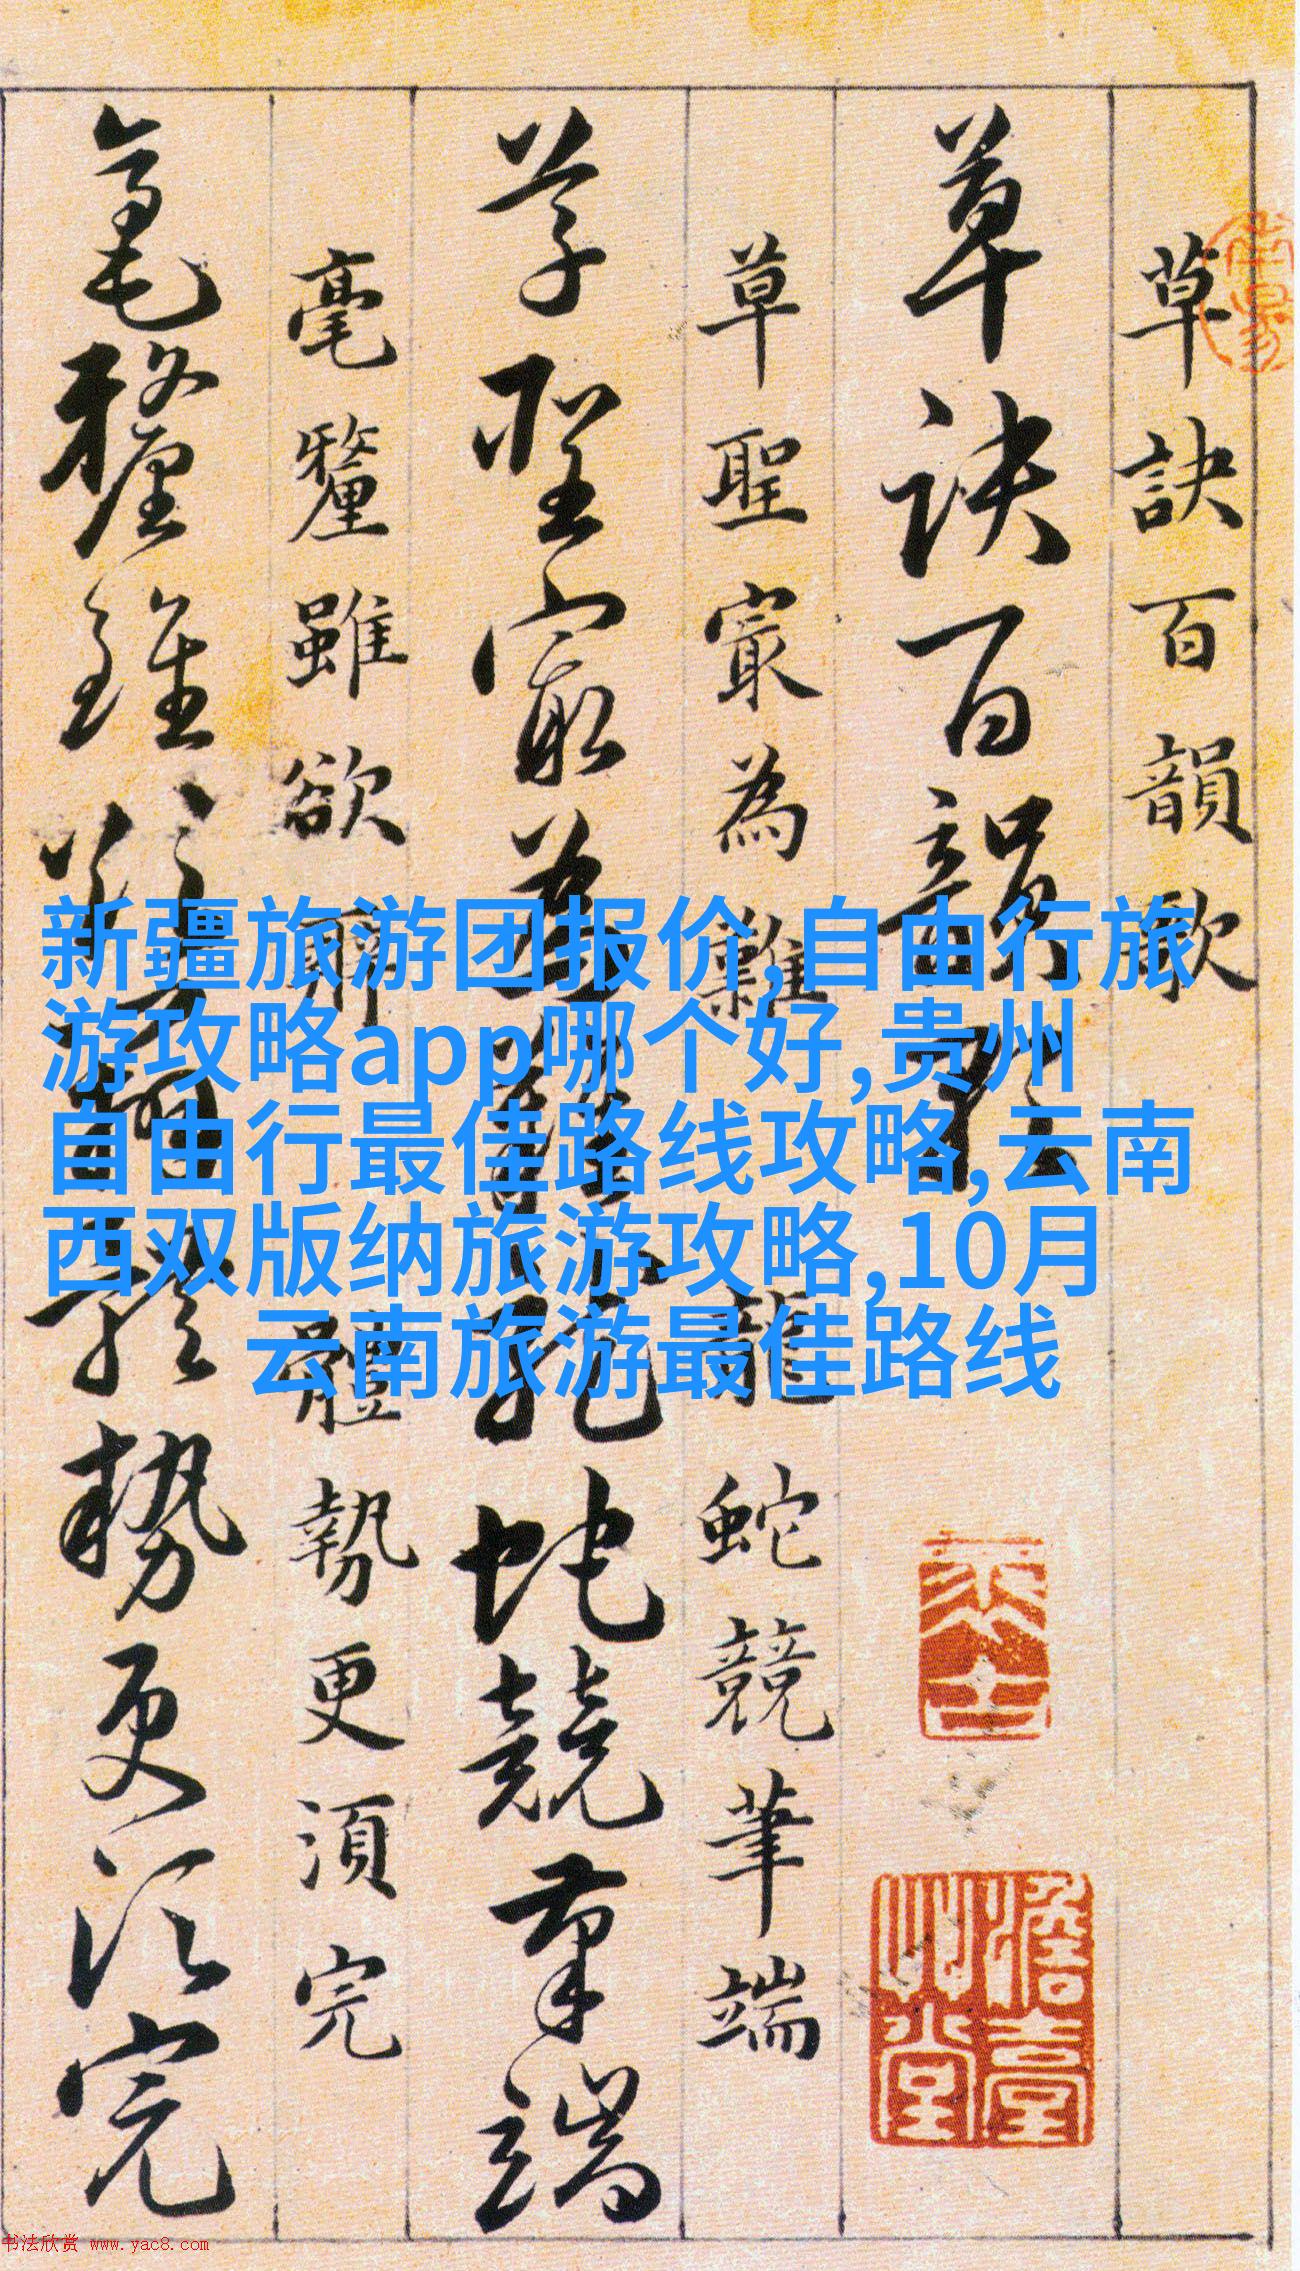 草訣百韻歌
草訣百韻歌
草聖㝡為難龍蛇競筆端
草聖㝡為難龍蛇競筆端
毫釐雖欲體勢更湏完
毫釐雖欲體勢更湏完
新疆旅游团报价,自由行旅
游攻略app哪个好,贵州
自由行最佳路线攻略,云南
西双版纳旅游攻略,10月
云南旅游最佳路线
书法欣赏 www.yac8.com